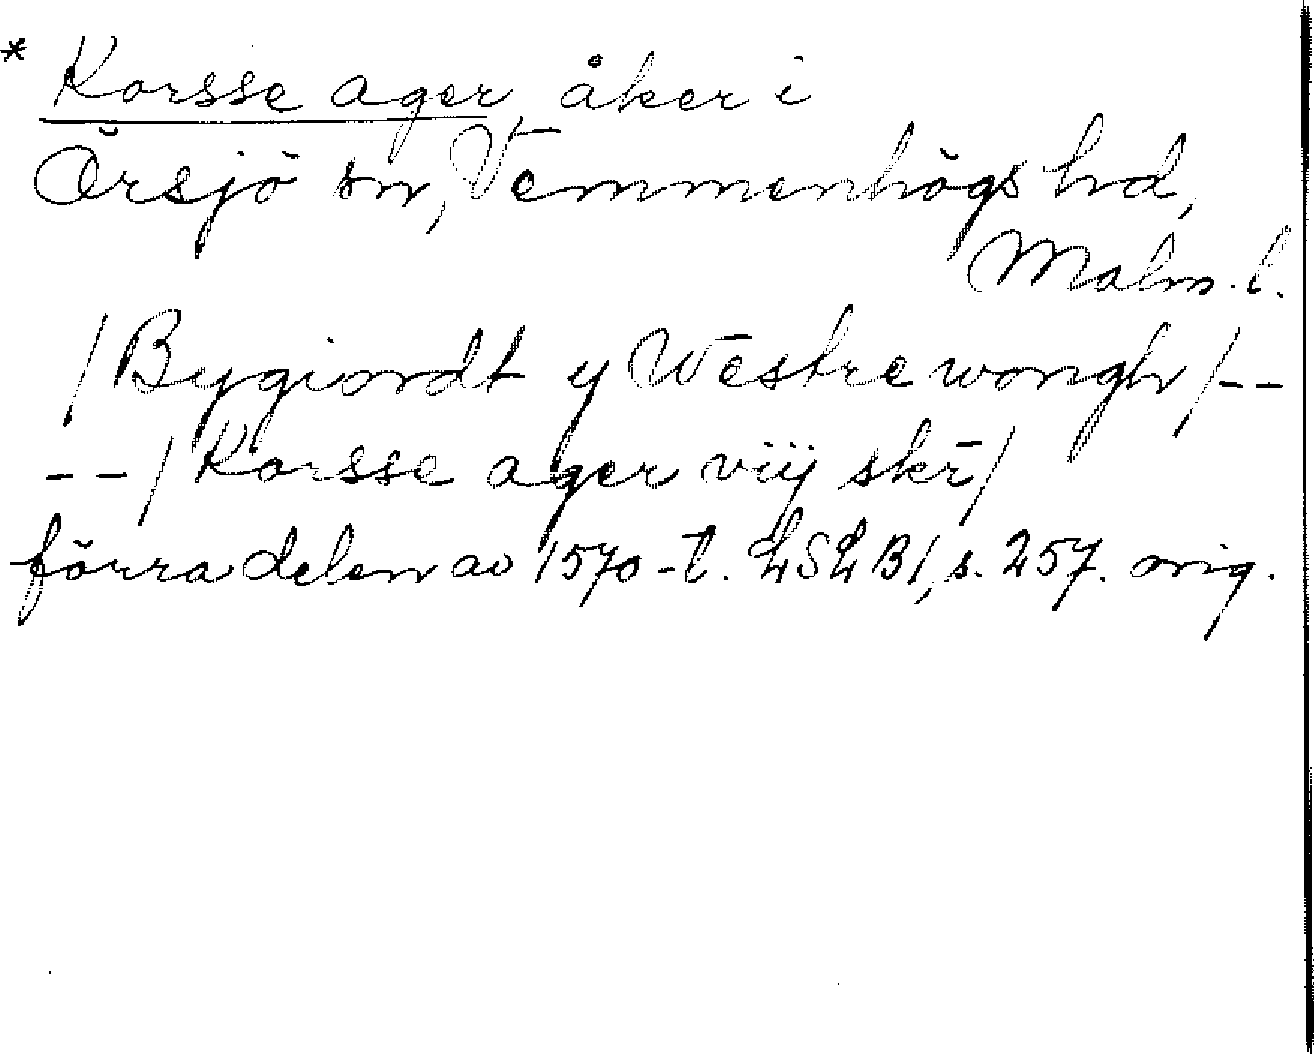 * Korsse ager, åker i
Örsjö sn, Vemmenhögs hd,
Malm. l.
/ Bygiordt y Westre wongh / --
-- / Korsse ager viij skr̄ /
förra delen av 1570-t. LSLB 1, s. 257. orig.